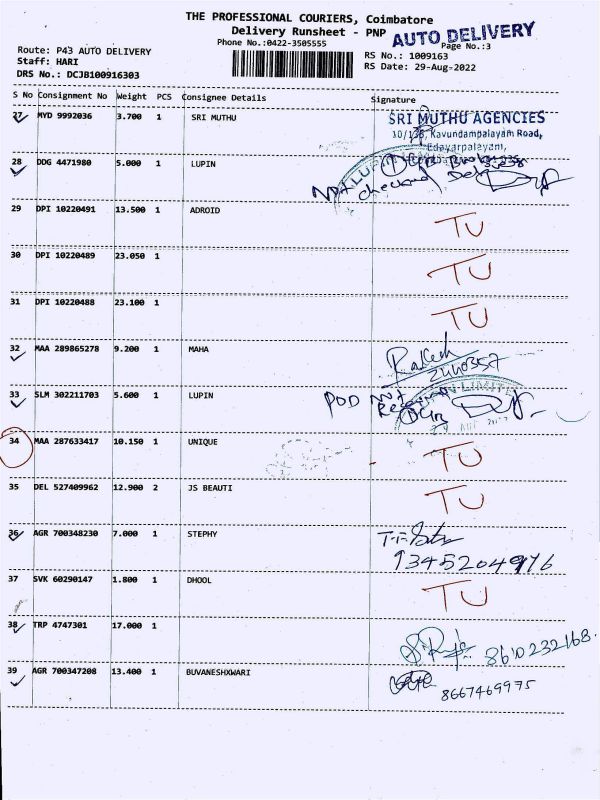 THE PROFESSIONAL COURIERS, Coimbatore
Delivery Runsheet - PNP
AUTO DELIVERY
Phone No.:0422-3505555
Page No.:3
Route: P43 AUTO DELIVERY
Staff: HARI
DRS No.: DCJB100916303
RS No.: 1009163
RS Date: 29-Aug-2022
S No Consignment No Weight PCS Consignee Details Signature
27 MYD 9992036 3.700 1 SRI MUTHU
SRI MUTHU AGENCIES
Kavundampalayam Road,
Edayarpalayam,
28 DDG 4471980 5.000 1 LUPIN
Not
checked
29 DPI 10220491 13.500 1 ADROID TU
30 DPI 10220489 23.050 1 TU
31 DPI 10220488 23.100 1 TU
32 MAA 289865278 9.200 1 MAHA
33 SLM 302211703 5.600 1 LUPIN
POD Not
34 MAA 287633417 10.150 1 UNIQUE TU
35 DEL 527409962 12.900 2 JS BEAUTI TU
36 AGR 700348230 7.000 1 STEPHY
37 SVK 60290147 1.800 1 DHOOL TU
38 TRP 4747301 17.000 1
8610232168
39 AGR 700347208 13.400 1 BUVANESHXWARI
8667469975